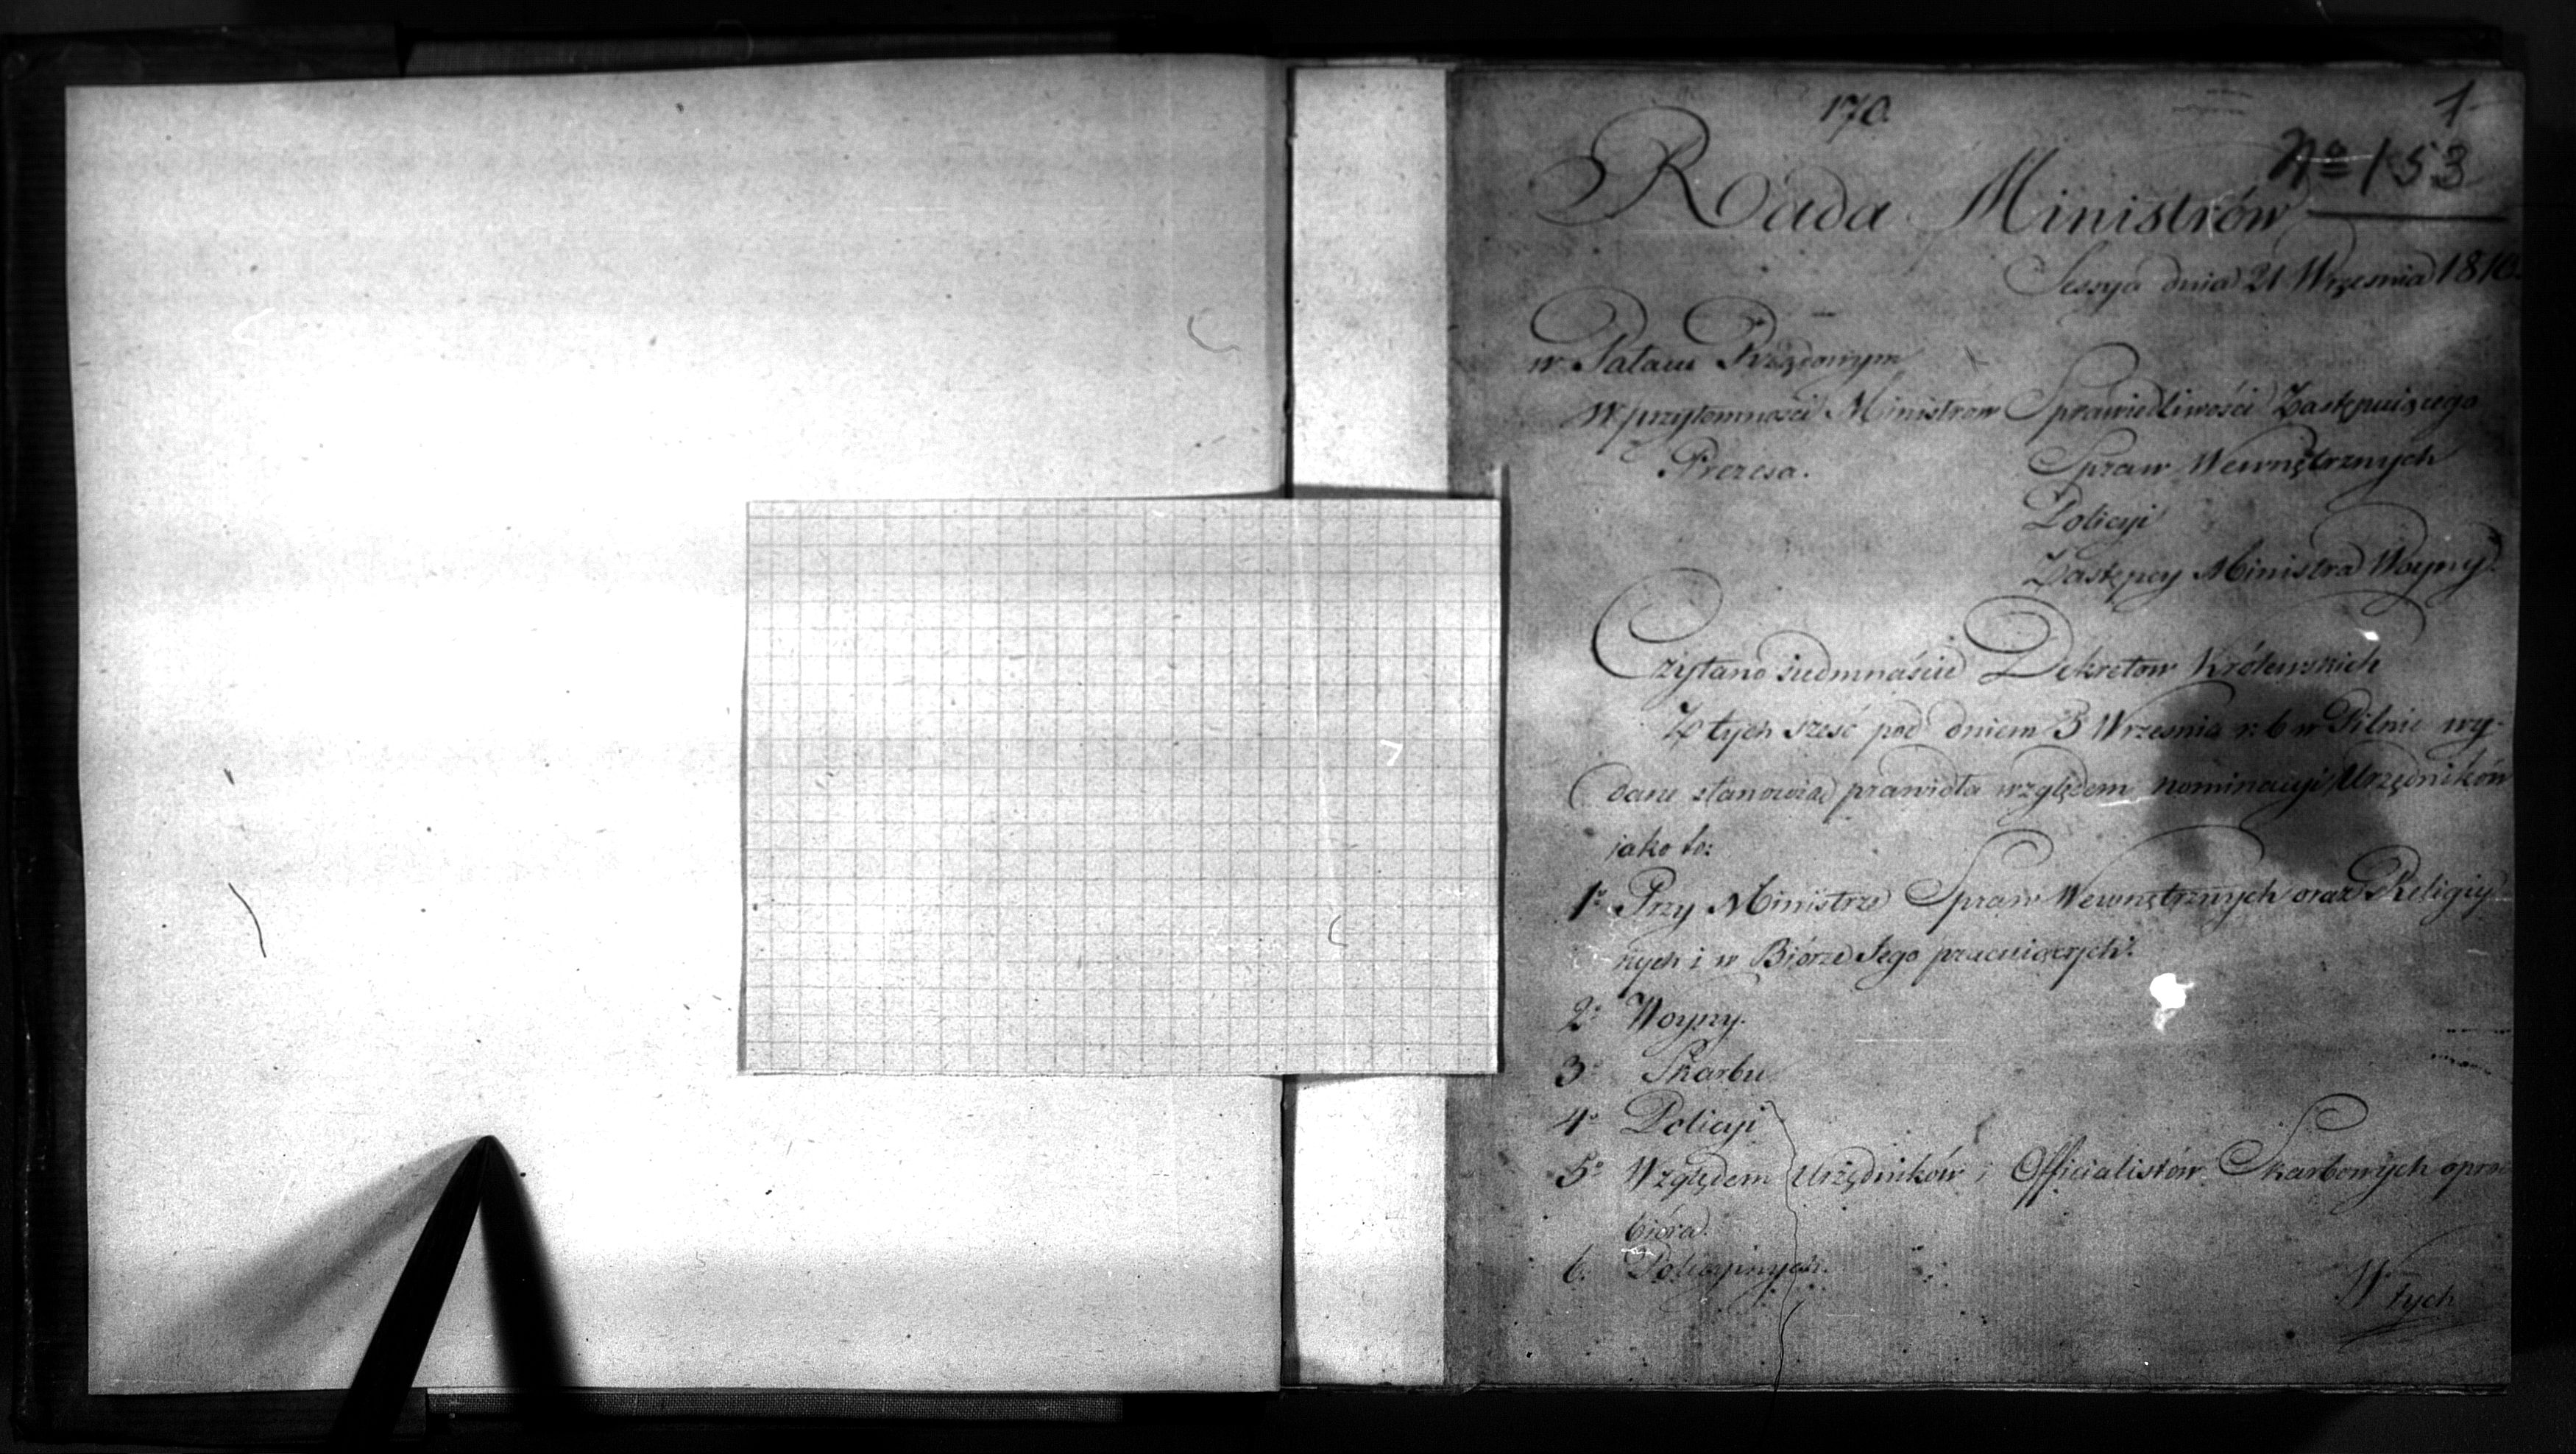 170.
1
No 153
Rada Ministrów
Sessya dnia 21 Września 1810.
w Pałacu Rządowym
W przytomności Ministrow Sprawiedliwości Zastępuiącego
Prezesa. Spraw Wewnętrznych
Policyi
Zastępcy Ministra Woyny.
Czytano siedmnaście Dekretow Królewskich
Z tych sześć pod dniem 3 Września r: b w Pilnic wy-
dane stanowiąc prawidła względem nominacyi Urzędników
jako to:
1o Przy Ministrze Spraw Wewnętrznych oraz Religiy
nych i w Biórze Jego pracuiących.
2o Woyny.
3o Skarbu
4o Policyi
5o Względem Urzędników i Officialistów Skarbowych oprócz
bióra.
6. Policyinych.
W tych